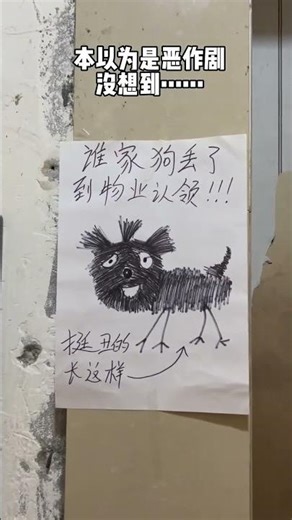 本以为是恶作剧
没想到……
谁家狗丢了
到物业认领!!!
挺丑的
长这样